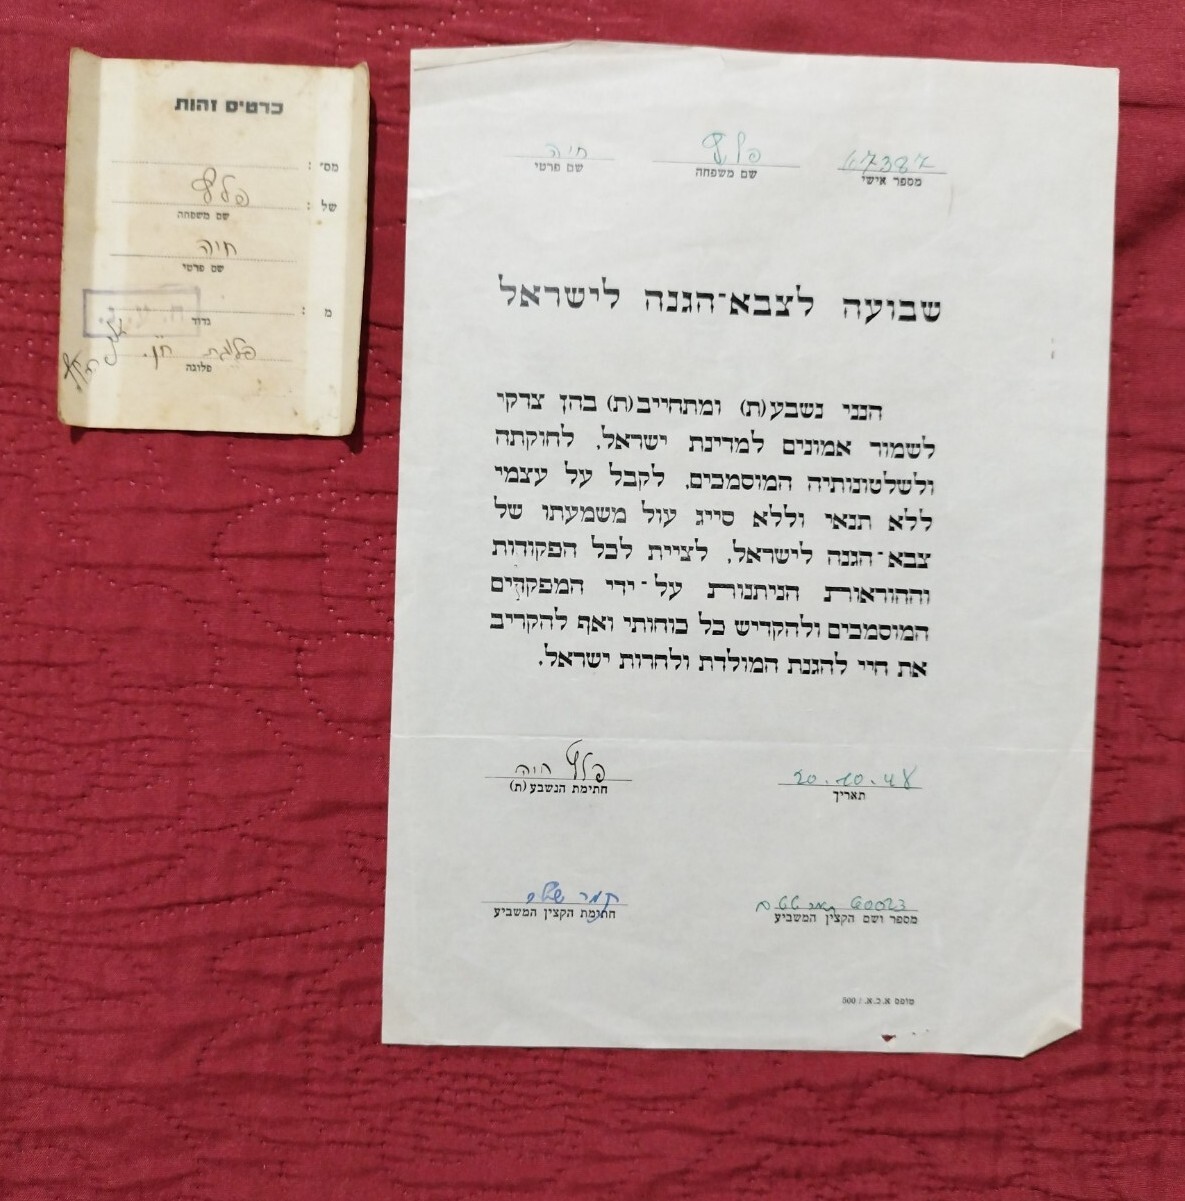 כרטיס זהות
מס׳ :
של : פלץ
שם משפחה
חיה
שם פרטי
מ :
גדוד
פלוגת חן.
פלוגה
47387 פלץ חיה
מספר אישי שם משפחה שם פרטי
שבועה לצבא־הגנה לישראל
הנני נשבע(ת) ומתחייב(ת) בהן צדקי
לשמור אמונים למדינת ישראל, לחוקתה
ולשלטונותיה המוסמכים, לקבל על עצמי
ללא תנאי וללא סייג עול משמעתו של
צבא־הגנה לישראל, לציית לכל הפקודות
וההוראות הניתנות על־ידי המפקדים
המוסמכים ולהקדיש כל כוחותי ואף להקריב
את חיי להגנת המולדת ולחרות ישראל.
20.10.48 פלץ חיה
תאריך חתימת הנשבע(ת)
תמר
מספר ושם הקצין המשביע חתימת הקצין המשביע
טופס א.כ.א. / 500